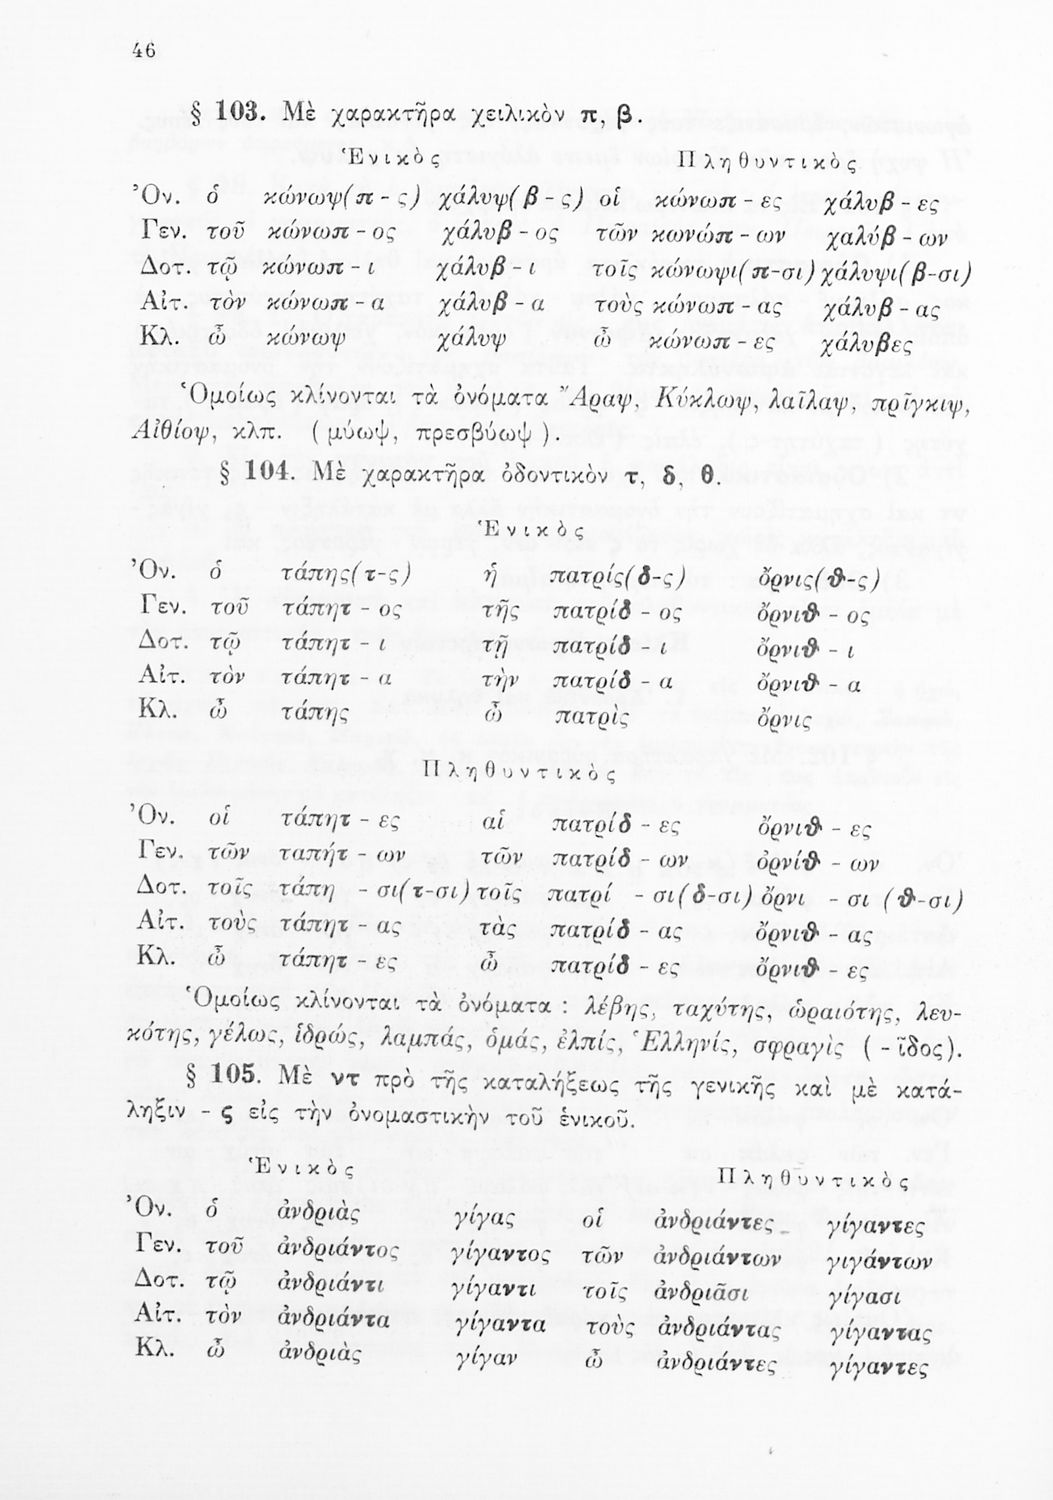 46
§ 103. Μὲ χαρακτῆρα χειλικὸν π, β.
Ἑνικὸς Πληθυντικὸς
Ὀν. ὁ κώνωψ(π-ς) χάλυψ(β-ς) οἱ κώνωπ-ες χάλυβ-ες
Γεν. τοῦ κώνωπ-ος χάλυβ-ος τῶν κωνώπ-ων χαλύβ-ων
Δοτ. τῷ κώνωπ-ι χάλυβ-ι τοῖς κώνωψι(π-σι) χάλυψι(β-σι)
Αἰτ. τὸν κώνωπ-α χάλυβ-α τοὺς κώνωπ-ας χάλυβ-ας
Κλ. ὦ κώνωψ χάλυψ ὦ κώνωπ-ες χάλυβες
Ὁμοίως κλίνονται τὰ ὀνόματα Ἄραψ, Κύκλωψ, λαῖλαψ, πρῖγκιψ,
Αἰθίοψ, κλπ. (μύωψ, πρεσβύωψ).
§ 104. Μὲ χαρακτῆρα ὀδοντικὸν τ, δ, θ.
Ἑνικὸς
Ὀν. ὁ τάπης(τ-ς) ἡ πατρίς(δ-ς) ὄρνις(θ-ς)
Γεν. τοῦ τάπητ - ος τῆς πατρίδ - ος ὄρνιθ - ος
Δοτ. τῷ τάπητ - ι τῇ πατρίδ - ι ὄρνιθ - ι
Αἰτ. τὸν τάπητ - α τὴν πατρίδ - α ὄρνιθ - α
Κλ. ὦ τάπης ὦ πατρὶς ὄρνις
Πληθυντικὸς
Ὀν. οἱ τάπητ - ες αἱ πατρίδ - ες ὄρνιθ - ες
Γεν. τῶν ταπήτ - ων τῶν πατρίδ - ων ὀρνίθ - ων
Δοτ. τοῖς τάπη - σι(τ-σι) τοῖς πατρί - σι(δ-σι) ὄρνι - σι (θ-σι)
Αἰτ. τοὺς τάπητ - ας τὰς πατρίδ - ας ὄρνιθ - ας
Κλ. ὦ τάπητ - ες ὦ πατρίδ - ες ὄρνιθ - ες
Ὁμοίως κλίνονται τὰ ὀνόματα : λέβης, ταχύτης, ὡραιότης, λευ-
κότης, γέλως, ἱδρώς, λαμπάς, ὁμάς, ἐλπίς, Ἑλληνίς, σφραγὶς (-ῖδος).
§ 105. Μὲ ντ πρὸ τῆς καταλήξεως τῆς γενικῆς καὶ μὲ κατά-
ληξιν - ς εἰς τὴν ὀνομαστικὴν τοῦ ἑνικοῦ.
Ἑνικὸς Πληθυντικὸς
Ὀν. ὁ ἀνδριὰς γίγας οἱ ἀνδριάντες γίγαντες
Γεν. τοῦ ἀνδριάντος γίγαντος τῶν ἀνδριάντων γιγάντων
Δοτ. τῷ ἀνδριάντι γίγαντι τοῖς ἀνδριᾶσι γίγασι
Αἰτ. τὸν ἀνδριάντα γίγαντα τοὺς ἀνδριάντας γίγαντας
Κλ. ὦ ἀνδριὰς γίγαν ὦ ἀνδριάντες γίγαντες